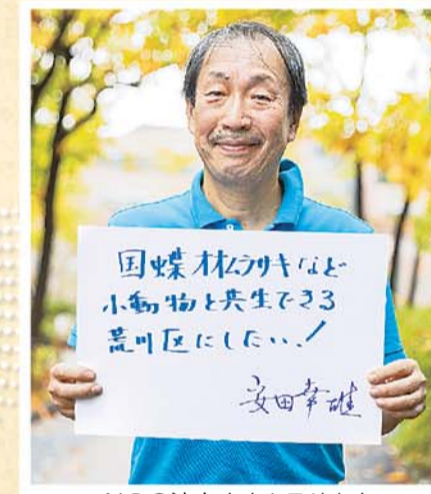 国蝶オオムラサキなど
小動物と共生できる
荒川区にしたい!
安田幸雄